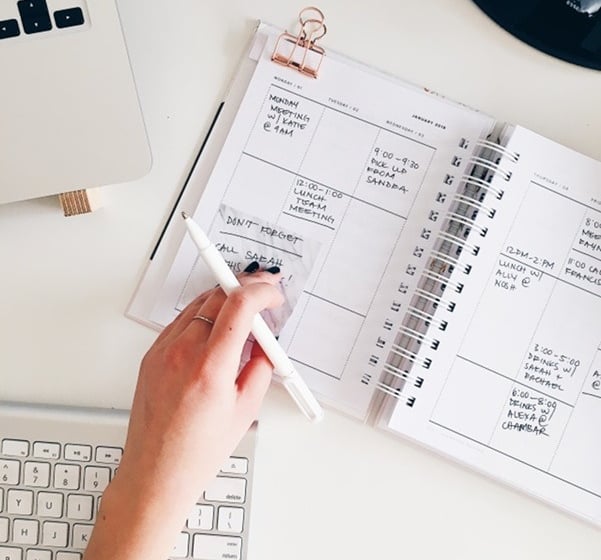 MONDAY : 01
MONDAY
MEETING
W/ KATIE
@ 9AM
TUESDAY : 02
12:00-1:00
LUNCH
TEAM
MEETING
JANUARY 2018
WEDNESDAY : 03
9:00-9:30
PICK UP
FROM
SANDRA
DON'T FORGET
CALL SARAH
THIS
THURSDAY : 04
12PM-2PM
LUNCH W/
ALLY @
NOSH
3:00-5:00
DRINKS W/
SARAH +
RACHAEL
6:00-8:00
DRINKS W/
ALEXA @
CHAMBAR
11:00
FRANCIS
delete
6
7
8
9
Y
U
I